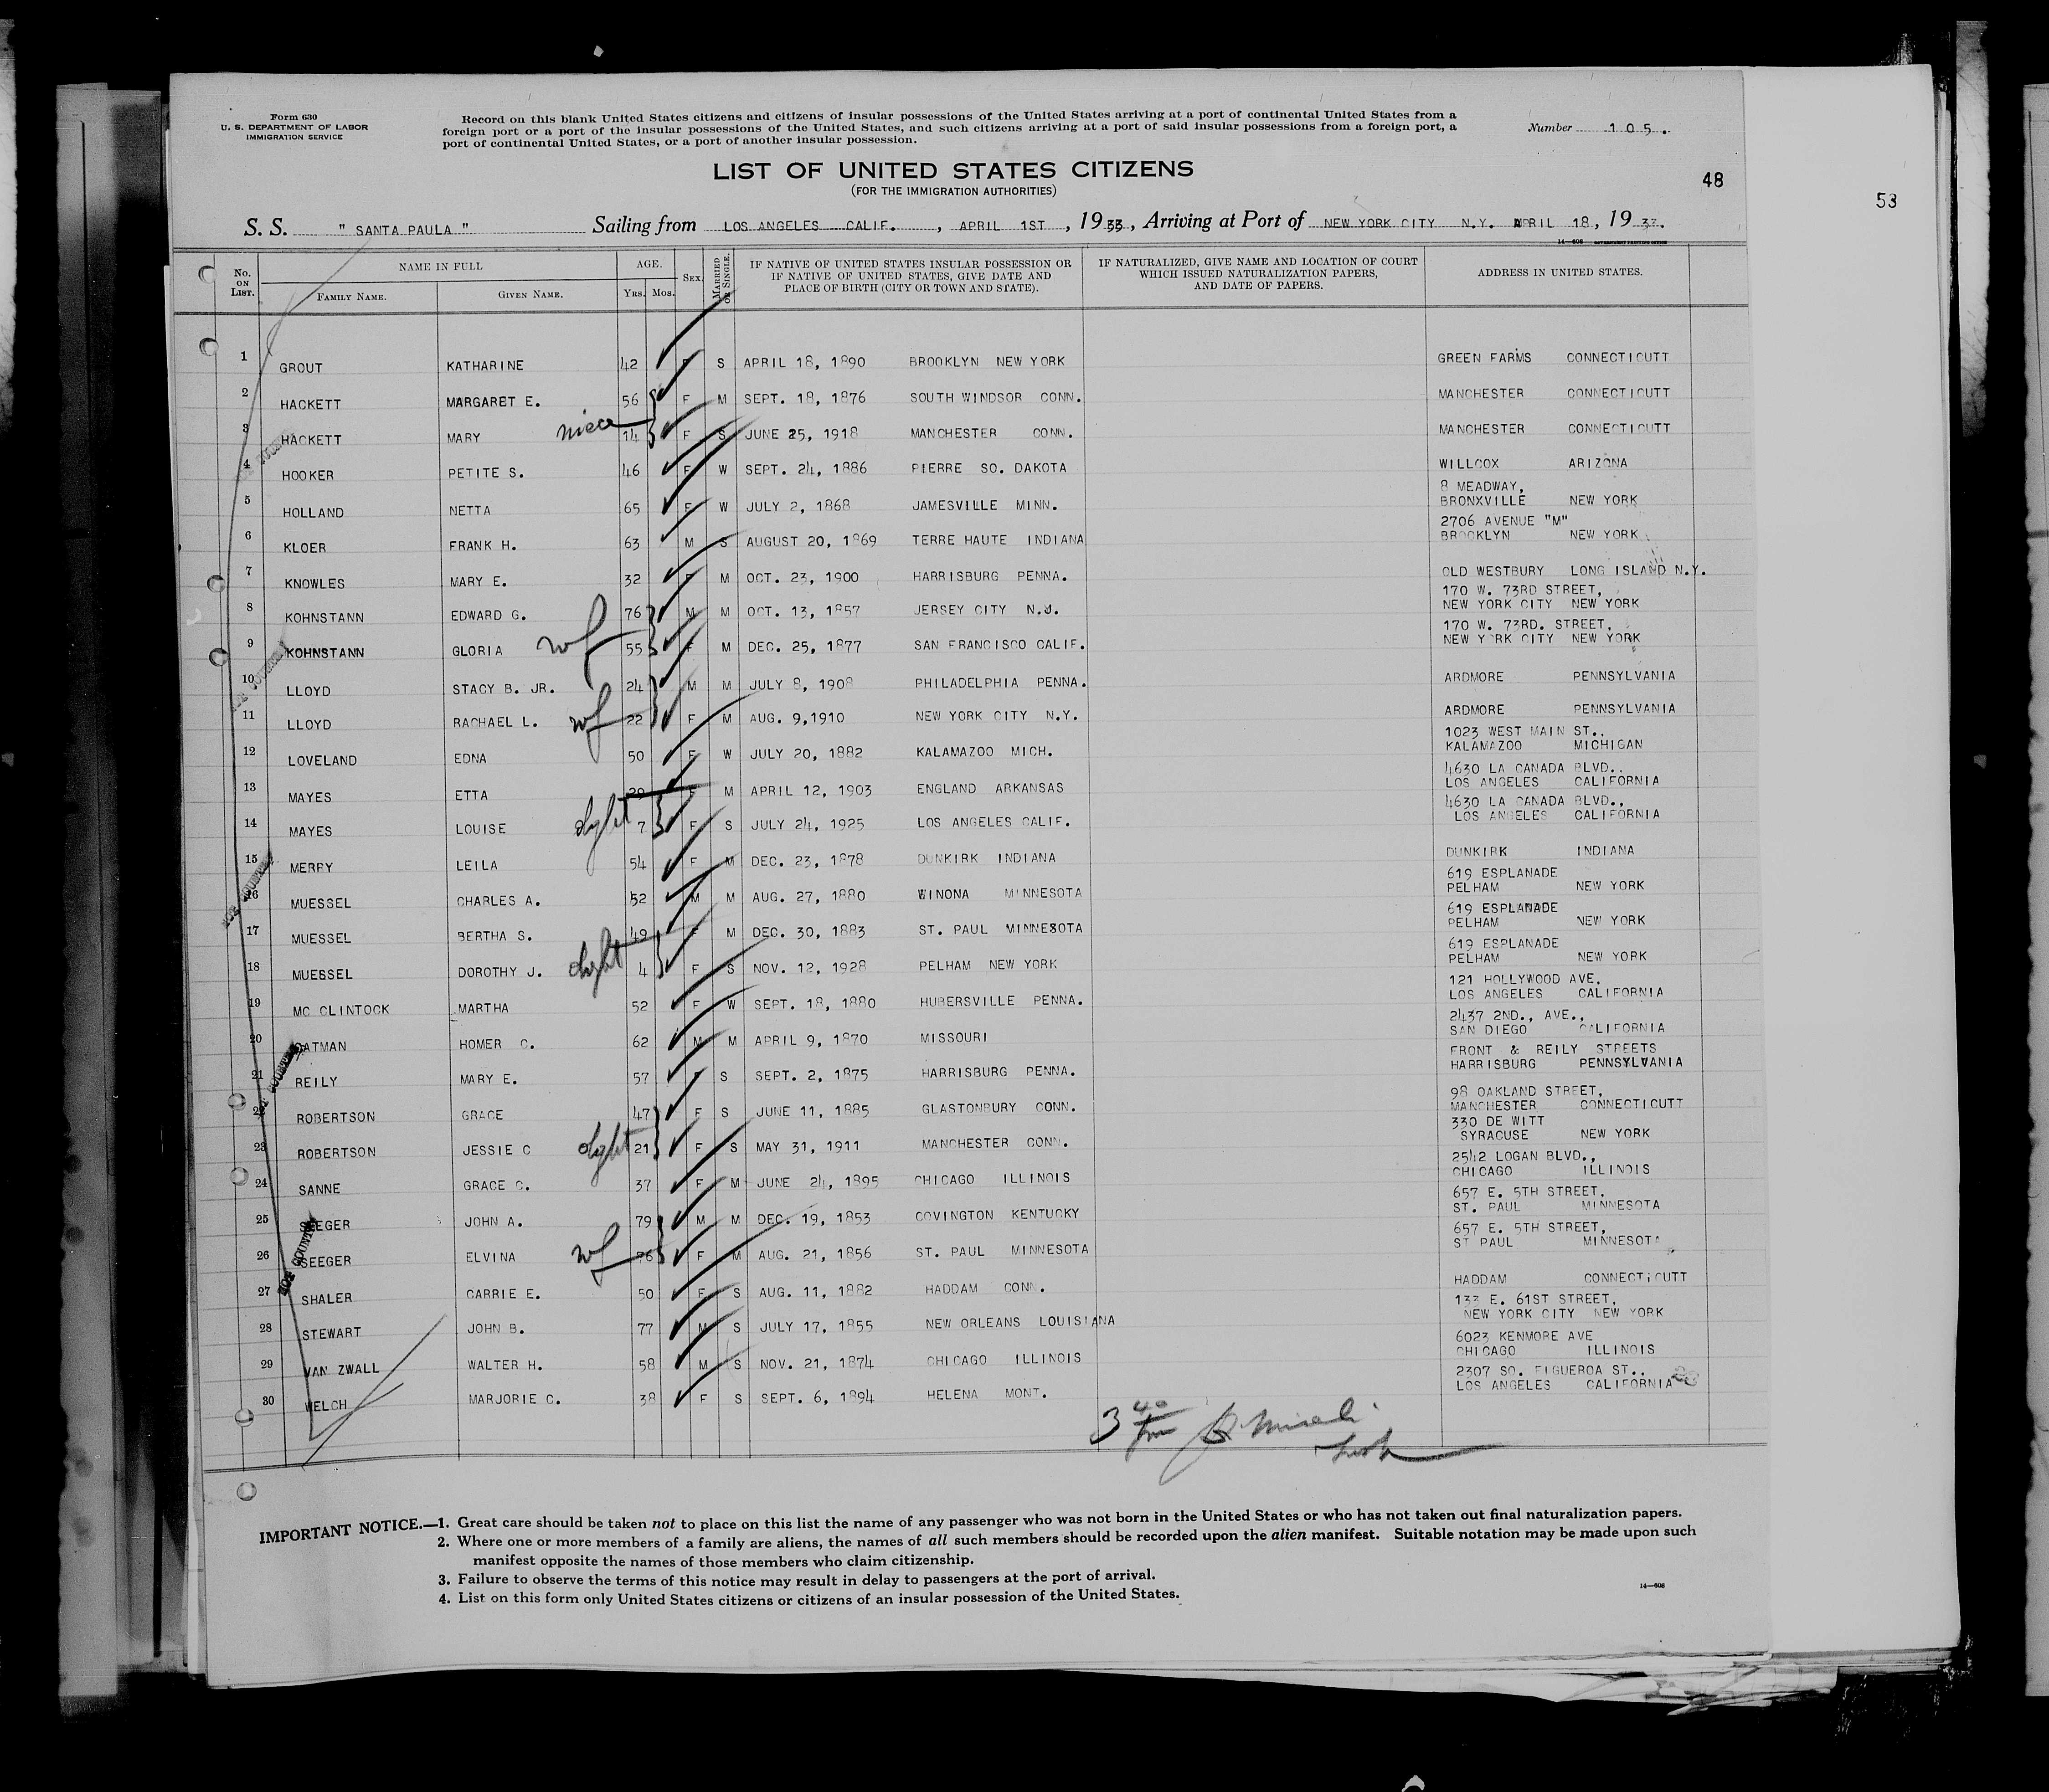 Form 630
U. S. DEPARTMENT OF LABOR
IMMIGRATION SERVICE
Record on this blank United States citizens and citizens of insular possessions of the United States arriving at a port of continental United States from a
foreign port or a port of the insular possessions of the United States, and such citizens arriving at a port of said insular possessions from a foreign port, a
port of continental United States, or a port of another insular possession.
Number 105.
LIST OF UNITED STATES CITIZENS
(FOR THE IMMIGRATION AUTHORITIES)
48
53
S. S. " SANTA PAULA " Sailing from LOS ANGELES CALIF. , APRIL 1ST , 1933, Arriving at Port of NEW YORK CITY N.Y. APRIL 18, 1933.
No. ON LIST. NAME IN FULL FAMILY NAME. GIVEN NAME. AGE. YRS. MOS. SEX. MARRIED OR SINGLE. IF NATIVE OF UNITED STATES INSULAR POSSESSION OR IF NATIVE OF UNITED STATES, GIVE DATE AND PLACE OF BIRTH (CITY OR TOWN AND STATE). IF NATURALIZED, GIVE NAME AND LOCATION OF COURT WHICH ISSUED NATURALIZATION PAPERS, AND DATE OF PAPERS. ADDRESS IN UNITED STATES.
1 GROUT KATHARINE 42 F S APRIL 18, 1890 BROOKLYN NEW YORK GREEN FARMS CONNECTICUTT
2 HACKETT MARGARET E. 56 F M SEPT. 18, 1876 SOUTH WINDSOR CONN. MANCHESTER CONNECTICUTT
3 HACKETT MARY niece 14 F S JUNE 25, 1918 MANCHESTER CONN. MANCHESTER CONNECTICUTT
4 HOOKER PETITE S. 46 F W SEPT. 24, 1886 PIERRE SO. DAKOTA WILLCOX ARIZONA
5 HOLLAND NETTA 65 F W JULY 2, 1868 JAMESVILLE MINN. 8 MEADWAY, BRONXVILLE NEW YORK
6 KLOER FRANK H. 63 M S AUGUST 20, 1869 TERRE HAUTE INDIANA 2706 AVENUE "M" BROOKLYN NEW YORK
7 KNOWLES MARY E. 32 F M OCT. 23, 1900 HARRISBURG PENNA. OLD WESTBURY LONG ISLAND N.Y.
8 KOHNSTANN EDWARD G. 76 M M OCT. 13, 1857 JERSEY CITY N.J. 170 W. 73RD STREET, NEW YORK CITY NEW YORK
9 KOHNSTANN GLORIA wf 55 F M DEC. 25, 1877 SAN FRANCISCO CALIF. 170 W. 73RD. STREET, NEW YORK CITY NEW YORK
10 LLOYD STACY B. JR. 24 M M JULY 8, 1908 PHILADELPHIA PENNA. ARDMORE PENNSYLVANIA
11 LLOYD RACHAEL L. wf 22 F M AUG. 9,1910 NEW YORK CITY N.Y. ARDMORE PENNSYLVANIA
12 LOVELAND EDNA 50 F W JULY 20, 1882 KALAMAZOO MICH. 1023 WEST MAIN ST., KALAMAZOO MICHIGAN
13 MAYES ETTA F M APRIL 12, 1903 ENGLAND ARKANSAS 4630 LA CANADA BLVD., LOS ANGELES CALIFORNIA
14 MAYES LOUISE dght 7 F S JULY 24, 1925 LOS ANGELES CALIF. 4630 LA CANADA BLVD., LOS ANGELES CALIFORNIA
15 MERRY LEILA 54 F M DEC. 23, 1878 DUNKIRK INDIANA DUNKIRK INDIANA
16 MUESSEL CHARLES A. 52 M M AUG. 27, 1880 WINONA MINNESOTA 619 ESPLANADE PELHAM NEW YORK
17 MUESSEL BERTHA S. 49 F M DEC. 30, 1883 ST. PAUL MINNESOTA 619 ESPLANADE PELHAM NEW YORK
18 MUESSEL DOROTHY J. dght 4 F S NOV. 12, 1928 PELHAM NEW YORK 619 ESPLANADE PELHAM NEW YORK
19 MC CLINTOCK MARTHA 52 F W SEPT. 18, 1880 HUBERSVILLE PENNA. 121 HOLLYWOOD AVE, LOS ANGELES CALIFORNIA
20 OATMAN HOMER C. 62 M M APRIL 9, 1870 MISSOURI 2437 2ND., AVE., SAN DIEGO CALIFORNIA
21 REILY MARY E. 57 F S SEPT. 2, 1875 HARRISBURG PENNA. FRONT & REILY STREETS HARRISBURG PENNSYLVANIA
22 ROBERTSON GRACE 47 F S JUNE 11, 1885 GLASTONBURY CONN. 98 OAKLAND STREET, MANCHESTER CONNECTICUTT
23 ROBERTSON JESSIE C dght 21 F S MAY 31, 1911 MANCHESTER CONN. 330 DE WITT SYRACUSE NEW YORK
24 SANNE GRACE C. 37 F M JUNE 24, 1895 CHICAGO ILLINOIS 2542 LOGAN BLVD., CHICAGO ILLINOIS
25 SEEGER JOHN A. 79 M M DEC. 19, 1853 COVINGTON KENTUCKY 657 E. 5TH STREET, ST. PAUL MINNESOTA
26 SEEGER ELVINA wf 76 F M AUG. 21, 1856 ST. PAUL MINNESOTA 657 E. 5TH STREET, ST PAUL MINNESOTA
27 SHALER CARRIE E. 50 F S AUG. 11, 1882 HADDAM CONN. HADDAM CONNECTICUTT
28 STEWART JOHN B. 77 M S JULY 17, 1855 NEW ORLEANS LOUISIANA 133 E. 61ST STREET, NEW YORK CITY NEW YORK
29 VAN ZWALL WALTER H. 58 M S NOV. 21, 1874 CHICAGO ILLINOIS 6023 KENMORE AVE CHICAGO ILLINOIS
30 WELCH MARJORIE C. 38 F S SEPT. 6, 1894 HELENA MONT. 2307 SO. FIGUEROA ST., LOS ANGELES CALIFORNIA
3 40
IMPORTANT NOTICE.—1. Great care should be taken not to place on this list the name of any passenger who was not born in the United States or who has not taken out final naturalization papers.
2. Where one or more members of a family are aliens, the names of all such members should be recorded upon the alien manifest. Suitable notation may be made upon such
manifest opposite the names of those members who claim citizenship.
3. Failure to observe the terms of this notice may result in delay to passengers at the port of arrival.
4. List on this form only United States citizens or citizens of an insular possession of the United States.
14—608